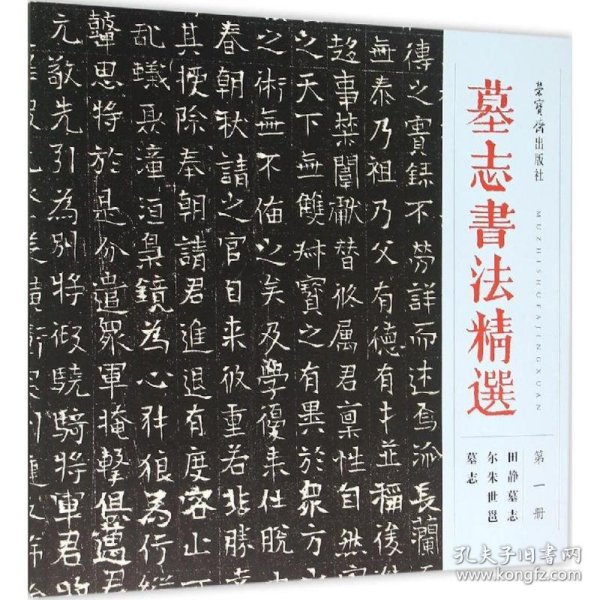 荣宝斋出版社
墓志書法精選
MUZHISHUFAJINGXUAN
第一册
田静墓志
尔朱世邕
墓志
傳之實録不勞詳而述焉派長蘭
無泰乃祖乃父有德有才並稱後
趍事禁闈獻替攸属君禀性自然
之天下無雙对寶之有異於衆方
之術無不偹之矣及學優来仕脱
春朝狀請之官自来彼重若非勝
其挭除奉朝請君進退有度容止
乱蟻聚潼洹梟鏡為心豺狼為行
思將於是分遣眾軍掩擊俱
元敬先引為別將假驍騎將軍君
孔夫子旧书网
www.kongfz.com